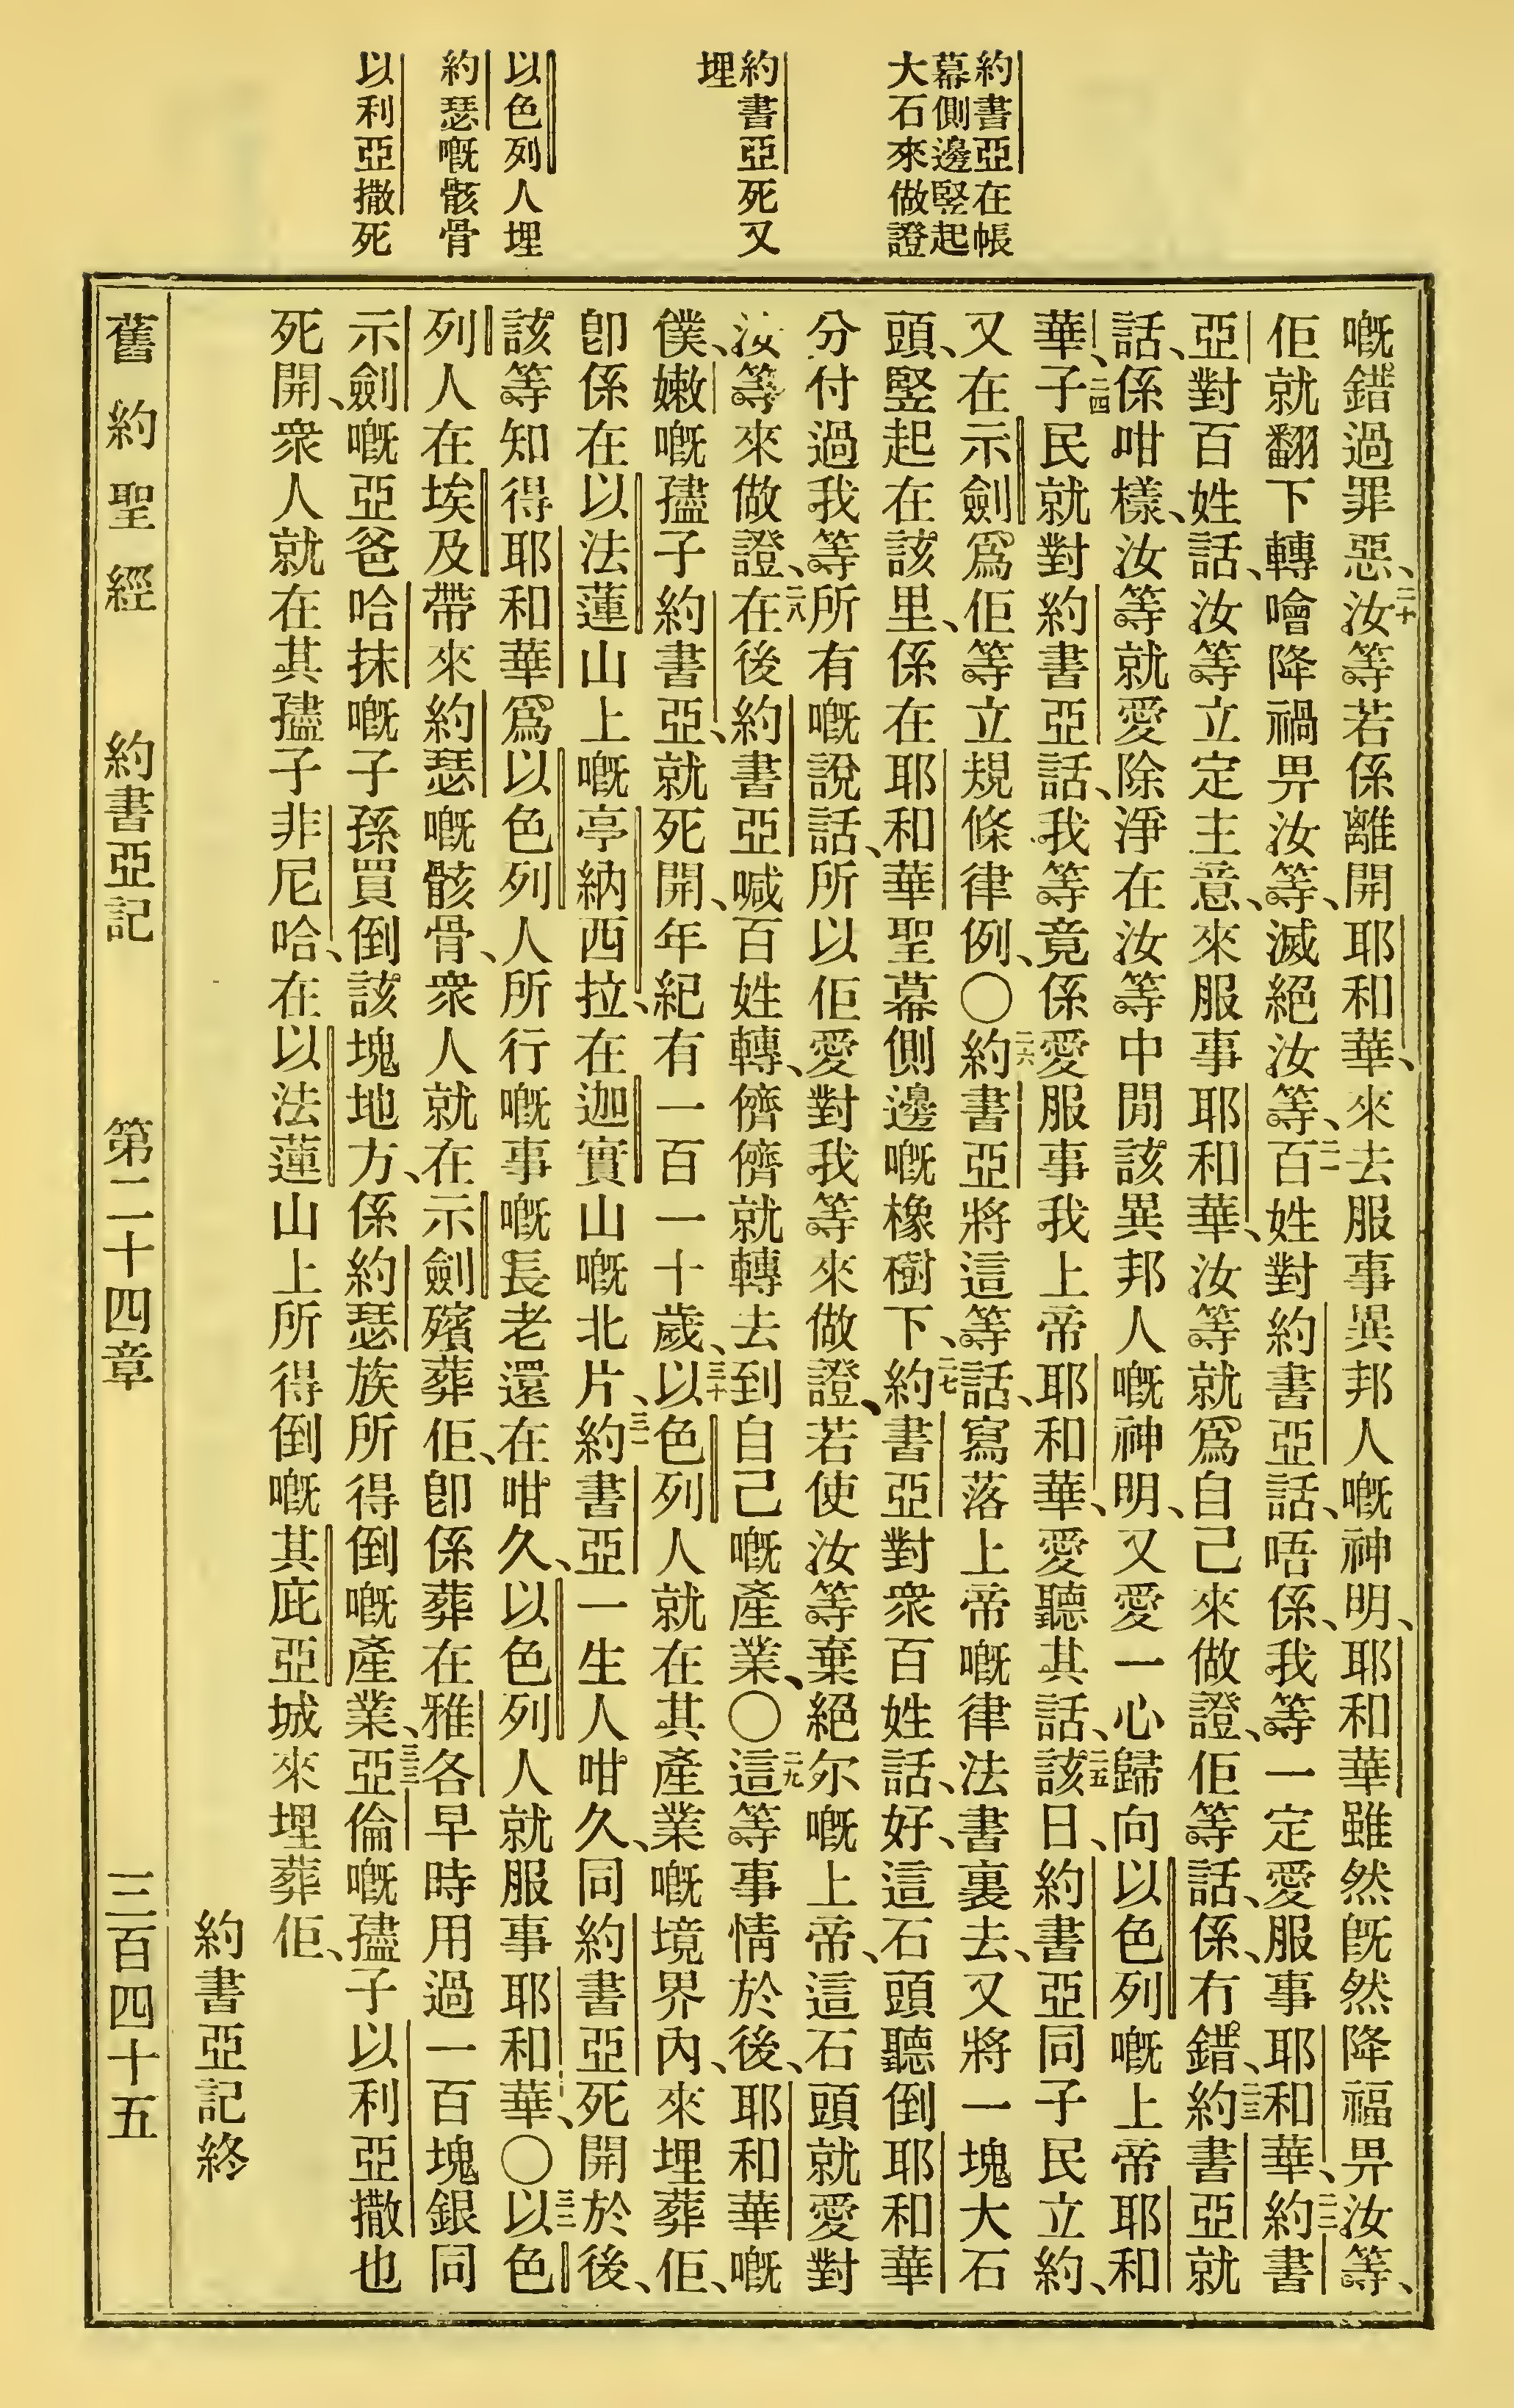 約書亞在帳
幕側邊竪起
大石來做證
約書亞死又
埋
以色列人埋
約瑟嘅骸骨
以利亞撒死
嘅錯過罪惡、二十汝等若係離開耶和華、來去服事異邦人嘅神明、耶和華雖然旣然降福畀汝等、
佢就翻下轉噲降禍畀汝等、滅絕汝等、二一百姓對約書亞話、唔係、我等一定愛服事耶和華、二二約書
亞對百姓話、汝等立定主意、來服事耶和華、汝等就爲自己來做證、佢等話、係、冇錯、二三約書亞就
話、係咁樣、汝等就愛除淨在汝等中間該異邦人嘅神明、又愛一心歸向以色列嘅上帝耶和
華、二四子民就對約書亞話、我等竟係愛服事我上帝耶和華、愛聽其話、二五該日、約書亞同子民立約、
又在示劍爲佢等立規條律例、〇二六約書亞將這等話、寫落上帝嘅律法書裏去、又將一塊大石
頭、竪起在該里、係在耶和華聖幕側邊嘅橡樹下、二七約書亞對衆百姓話、好、這石頭聽倒耶和華
分付過我等所有嘅說話、所以佢愛對我等來做證、若使汝等棄絕尔嘅上帝、這石頭就愛對
汝等來做證、二八在後約書亞喊百姓轉、儕儕就轉去到自己嘅產業、〇二九這等事情於後、耶和華嘅
僕、嫩嘅孻子約書亞、就死開、年紀有一百一十歲、三十以色列人就在其產業嘅境界內、來埋葬佢、
卽係在以法蓮山上嘅亭納西拉、在迦實山嘅北片、三一約書亞一生人咁久、同約書亞死開於後、
該等知得耶和華爲以色列人所行嘅事嘅長老還在咁久、以色列人就服事耶和華、〇三二以色
列人在埃及帶來約瑟嘅骸骨、衆人就在示劍殯葬佢、卽係葬在雅各早時用過一百塊銀同
示劍嘅亞爸哈抹嘅子孫買倒該塊地方、係約瑟族所得倒嘅產業、三三亞倫嘅孻子以利亞撒也
死開、衆人就在其孻子非尼哈、在以法蓮山上所得倒嘅其庇亞城來埋葬佢、
約書亞記終
舊約聖經　約書亞記　第二十四章　三百四十五